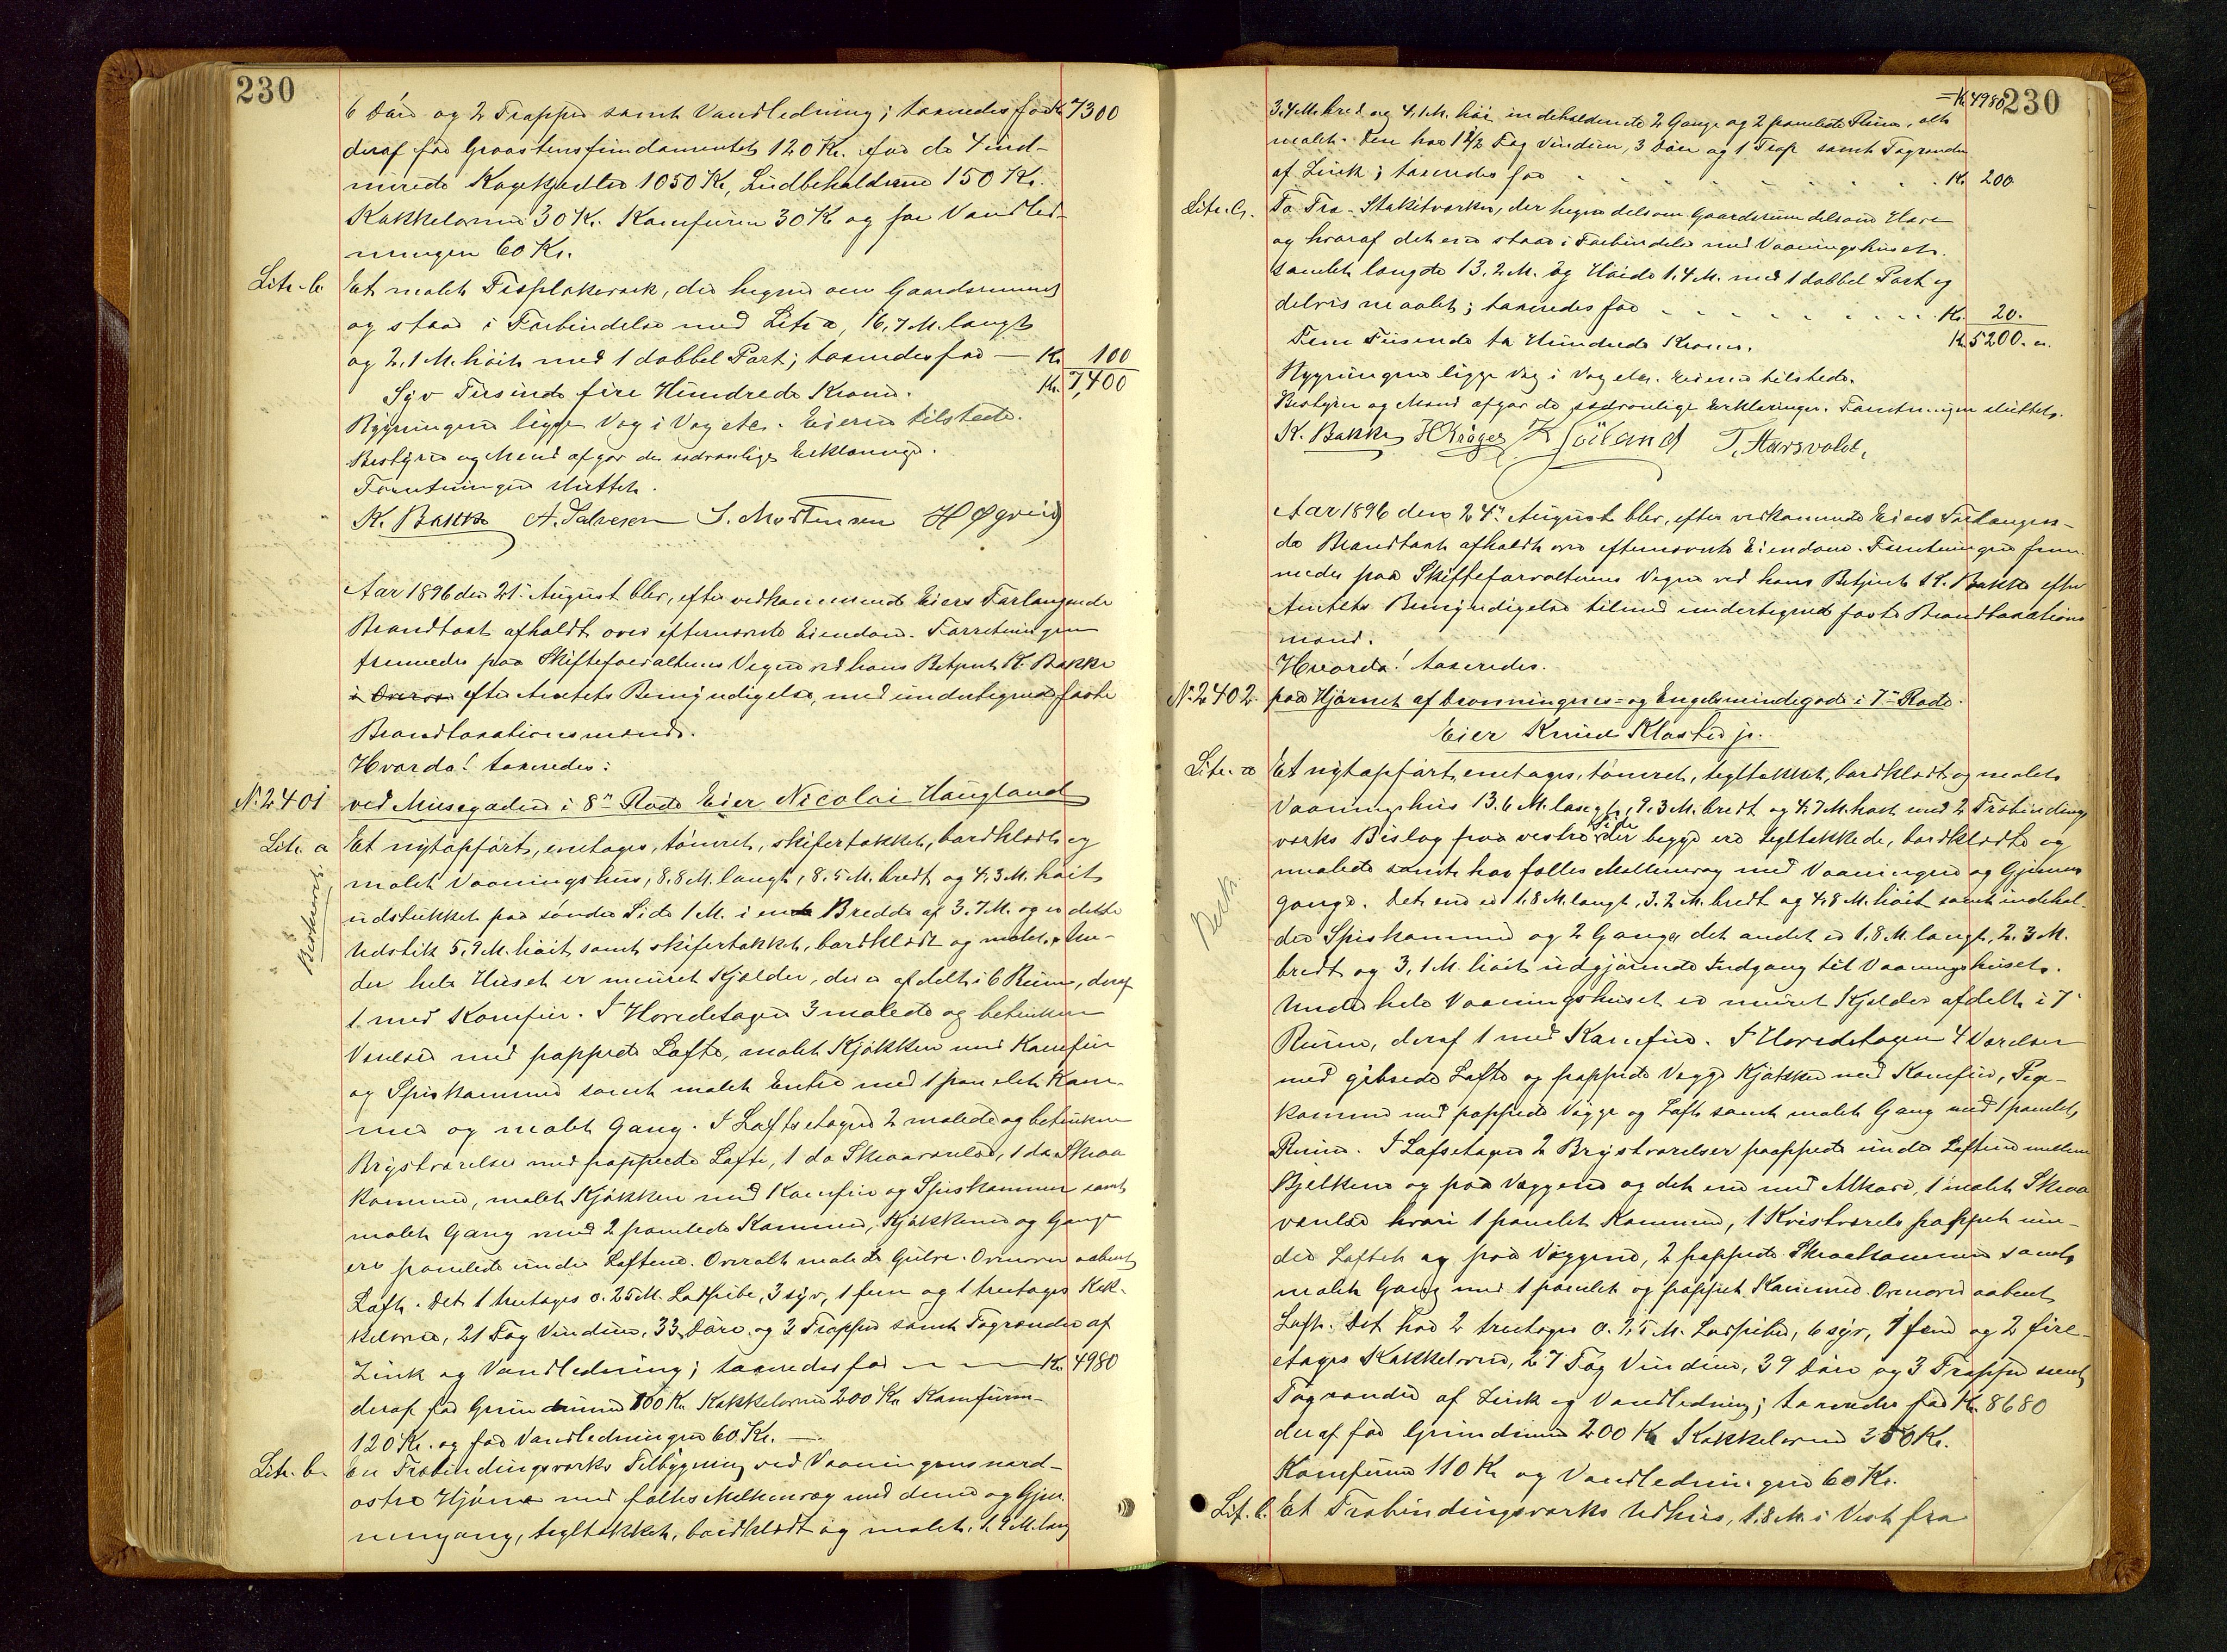 230
6 Döre og 2 Trapper samt Vandledning; taxeredes for Kr. 7300
deraf for Graastensfundamentet 120 Kr. for de 4 ind-
murede Kogekjedler 1050 Kr, Ludbeholderne 150 Kr.
Kakkelovne 30 Kr. Komfuren 30 Kr og for Vandled-
ningen 60 Kr.
Litr. b Et malet Træplankeværk, der hegner om Gaardsrummet
og staar i Forbindelse med Litr a, 16,7 M. langt
og 2,1 M. høit med 1 dobbel Port; taxeredes for — Kr 100
Syv Tusinde fire Hundrede Kroner. Kr. 7,400
Bygningerne ligge Væg i Væg etc. Eieren tilstede.
Bestyrer og Mænd afgav de sædvanlige Erklæringer.
Forretningen sluttet.
K. Bakke A. Salvesen S. Mortensen H Øgreid
Aar 1896 den 21. August blev, efter vedkommende Eiers Forlangende
Brandtaxt afholdt over efternævnte Eiendom. Forretningen
fremmedes paa Skifteforvalterens Vegne ved hans Betjent K. Bakke
efter Amtets Bemyndigelse, med undertegnede faste
Brandtaxationsmænd.
Hvorda! taxeredes:
No. 2401 ved Musegaden i 8de Rode Eier Nicolai Haugland
Litr. a Et nyopført, enetages, tømret, skifertækket, bordklædt og
malet Vaaningshus, 8.8 M. langt, 8.5 M. bredt og 4,3 M. høit
udstukket paa søndre Side 1 M. i en Bredde af 3.7 M. og er dette
Udstik 5,9 M. høit samt skifertækket, bordklædt og malet. Un-
der hele Huset er muret Kjælder, der er afdelt i 6 Rum, deraf
1 med Komfur. I Hovedetagen 3 malede og betrukne
Værelser med pappede Lofte, malet Kjøkken med Komfur
og Spiskammer samt malet Entre med 1 panelet Kam-
mer og malet Gang. I Loftsetagen 2 malede og betrukne
Brystværelser med pappede Lofte, 1 do Skraaværelse, 1 do Skraa
kammer, malet Kjøkken med Komfur og Spiskammer samt
malet Gang med 2 panelede Kammere, Kjøkkener og Gange
ere panelede under Loftene. Overalt malede Gulve. Ovenover aabent
Loft. Det 1 treetages o. 25 M. Ladpibe, 3 syv, 1 fem og 1 treetages Kak-
kelovne, 21 Fag Vinduer, 33 Døre og 3 Trapper samt Tagrender af
Zink og Vandledning; taxeredes for — Kr. 4980
deraf for Grundmuren 100 Kr. Kakkelovne 200 Kr. Komfurene
120 Kr. og for Vandledningen 60 Kr.
Litr. b. En Træbindingsværks Tilbygning ved Vaaningens nord-
østre Hjørne med fælles Mellemvæg med denne og Gjen-
nemgang, tegltækket, bordklædt og malet, 1.9 M. lang
Beskreves.
= Kr. 4980 230
3.4 M. bred og 4,1 M. høi indeholdende 2 Gange og 2 panelede Rum, alt
malet. Den har 1½ Fag Vinduer, 3 Døre og 1 Trap samt Tagrender
af Zink; taxeredes for Kr. 200
Litr. c. To Træ-Stakitværker, der hegne delsom Gaardsrum delsom Have
og hvoraf det ene staar i Forbindelse med Vaaningshuset.
samlet længde 13,2 M. og Høide 1.4 M. med 1 dobbel Port og
delvis malet; taxeredes for Kr. 20.
Fem Tusinde to Hundrede Kroner. Kr. 5200.
Bygningerne ligge Væg i Væg etc. Eieren tilstede.
Bestyrer og Mænd afgav de sædvanlige Erklæringer. Forretningen sluttet.
K. Bakke HKrøger T. Aarsvoldt,
Aar 1896 den 24de August blev, efter vedkommende Eiers Forlangen-
de Brandtaxt afholdt over efternævnte Eiendom. Forretningen frem-
medes paa Skifteforvalterens Vegne ved hans Betjent K. Bakke efter
Amtets Bemyndigelse tilmed undertegnede faste Brandtaxations
mænd.
Hvorda! taxeredes.
No. 2402. paa Hjørnet af Dronningens- og Engelsmindegade i 7de Rode.
Eier Knud Kloster jr.
Litr. a Et nyopført, enetages, tømret, tegltækket, bordklædt og malet
Vaaningshus 13.6 M. langt, 9.3 M. bredt og 4,7 M. høit med 2 Træbindings
værks Bislag paa vestre Side der begge ere tegltækkede, bordklædte og
malede samt har fælles Mellemvæg med Vaaningen og Gjennem
gange. Det ene er 1.8 M. langt, 3.2 M. bredt og 4,8 M. høit samt indehol-
der Spiskammer og 2 Gange det andet er 1,8 M. langt, 2.3 M.
bredt og 3,1 M. høit udgjørende Indgang til Vaaningshuset.
Under hele Vaaningshuset er muret Kjælder afdelt i 7
Rum, deraf 1 med Komfur. I Hovedetagen 4 Værelser
med gibsede Lofte og pappede Vægge Kjøkken med Komfur, Pige-
kammer med pappede Vægge og Loft samt malet Gang med 1 panelet
Rum. I Loftsetagen 2 Brystværelser pappede under Loftene mellem
Bjelkene og paa Væggene og det ene med Alkove, 1 malet Skraa
værelse hvori 1 panelet Kammer, 1 Kvistværelse pappet un-
der Loftet og paa Væggene, 2 pappede Skraakammere samt
malet Gang med 1 panelet og pappet Kammer. Ovenover aabent
Loft. Det har 2 treetages o. 7.5 M. Ladpiber, 6 syv, 1 fem og 2 fire-
etages Kakkelovne, 27 Fag Vinduer, 39 Døre og 3 Trapper samt
Tagrender af Zink og Vandledning; taxeredes for Kr. 8680
deraf for Grundmuren 200 Kr Kakkelovne 350 Kr.
Komfurene 110 Kr og Vandledningen 60 Kr.
Lit. b. Et Træbindingsværks Udhus, 1.8 M. i Vest fra
Besk.